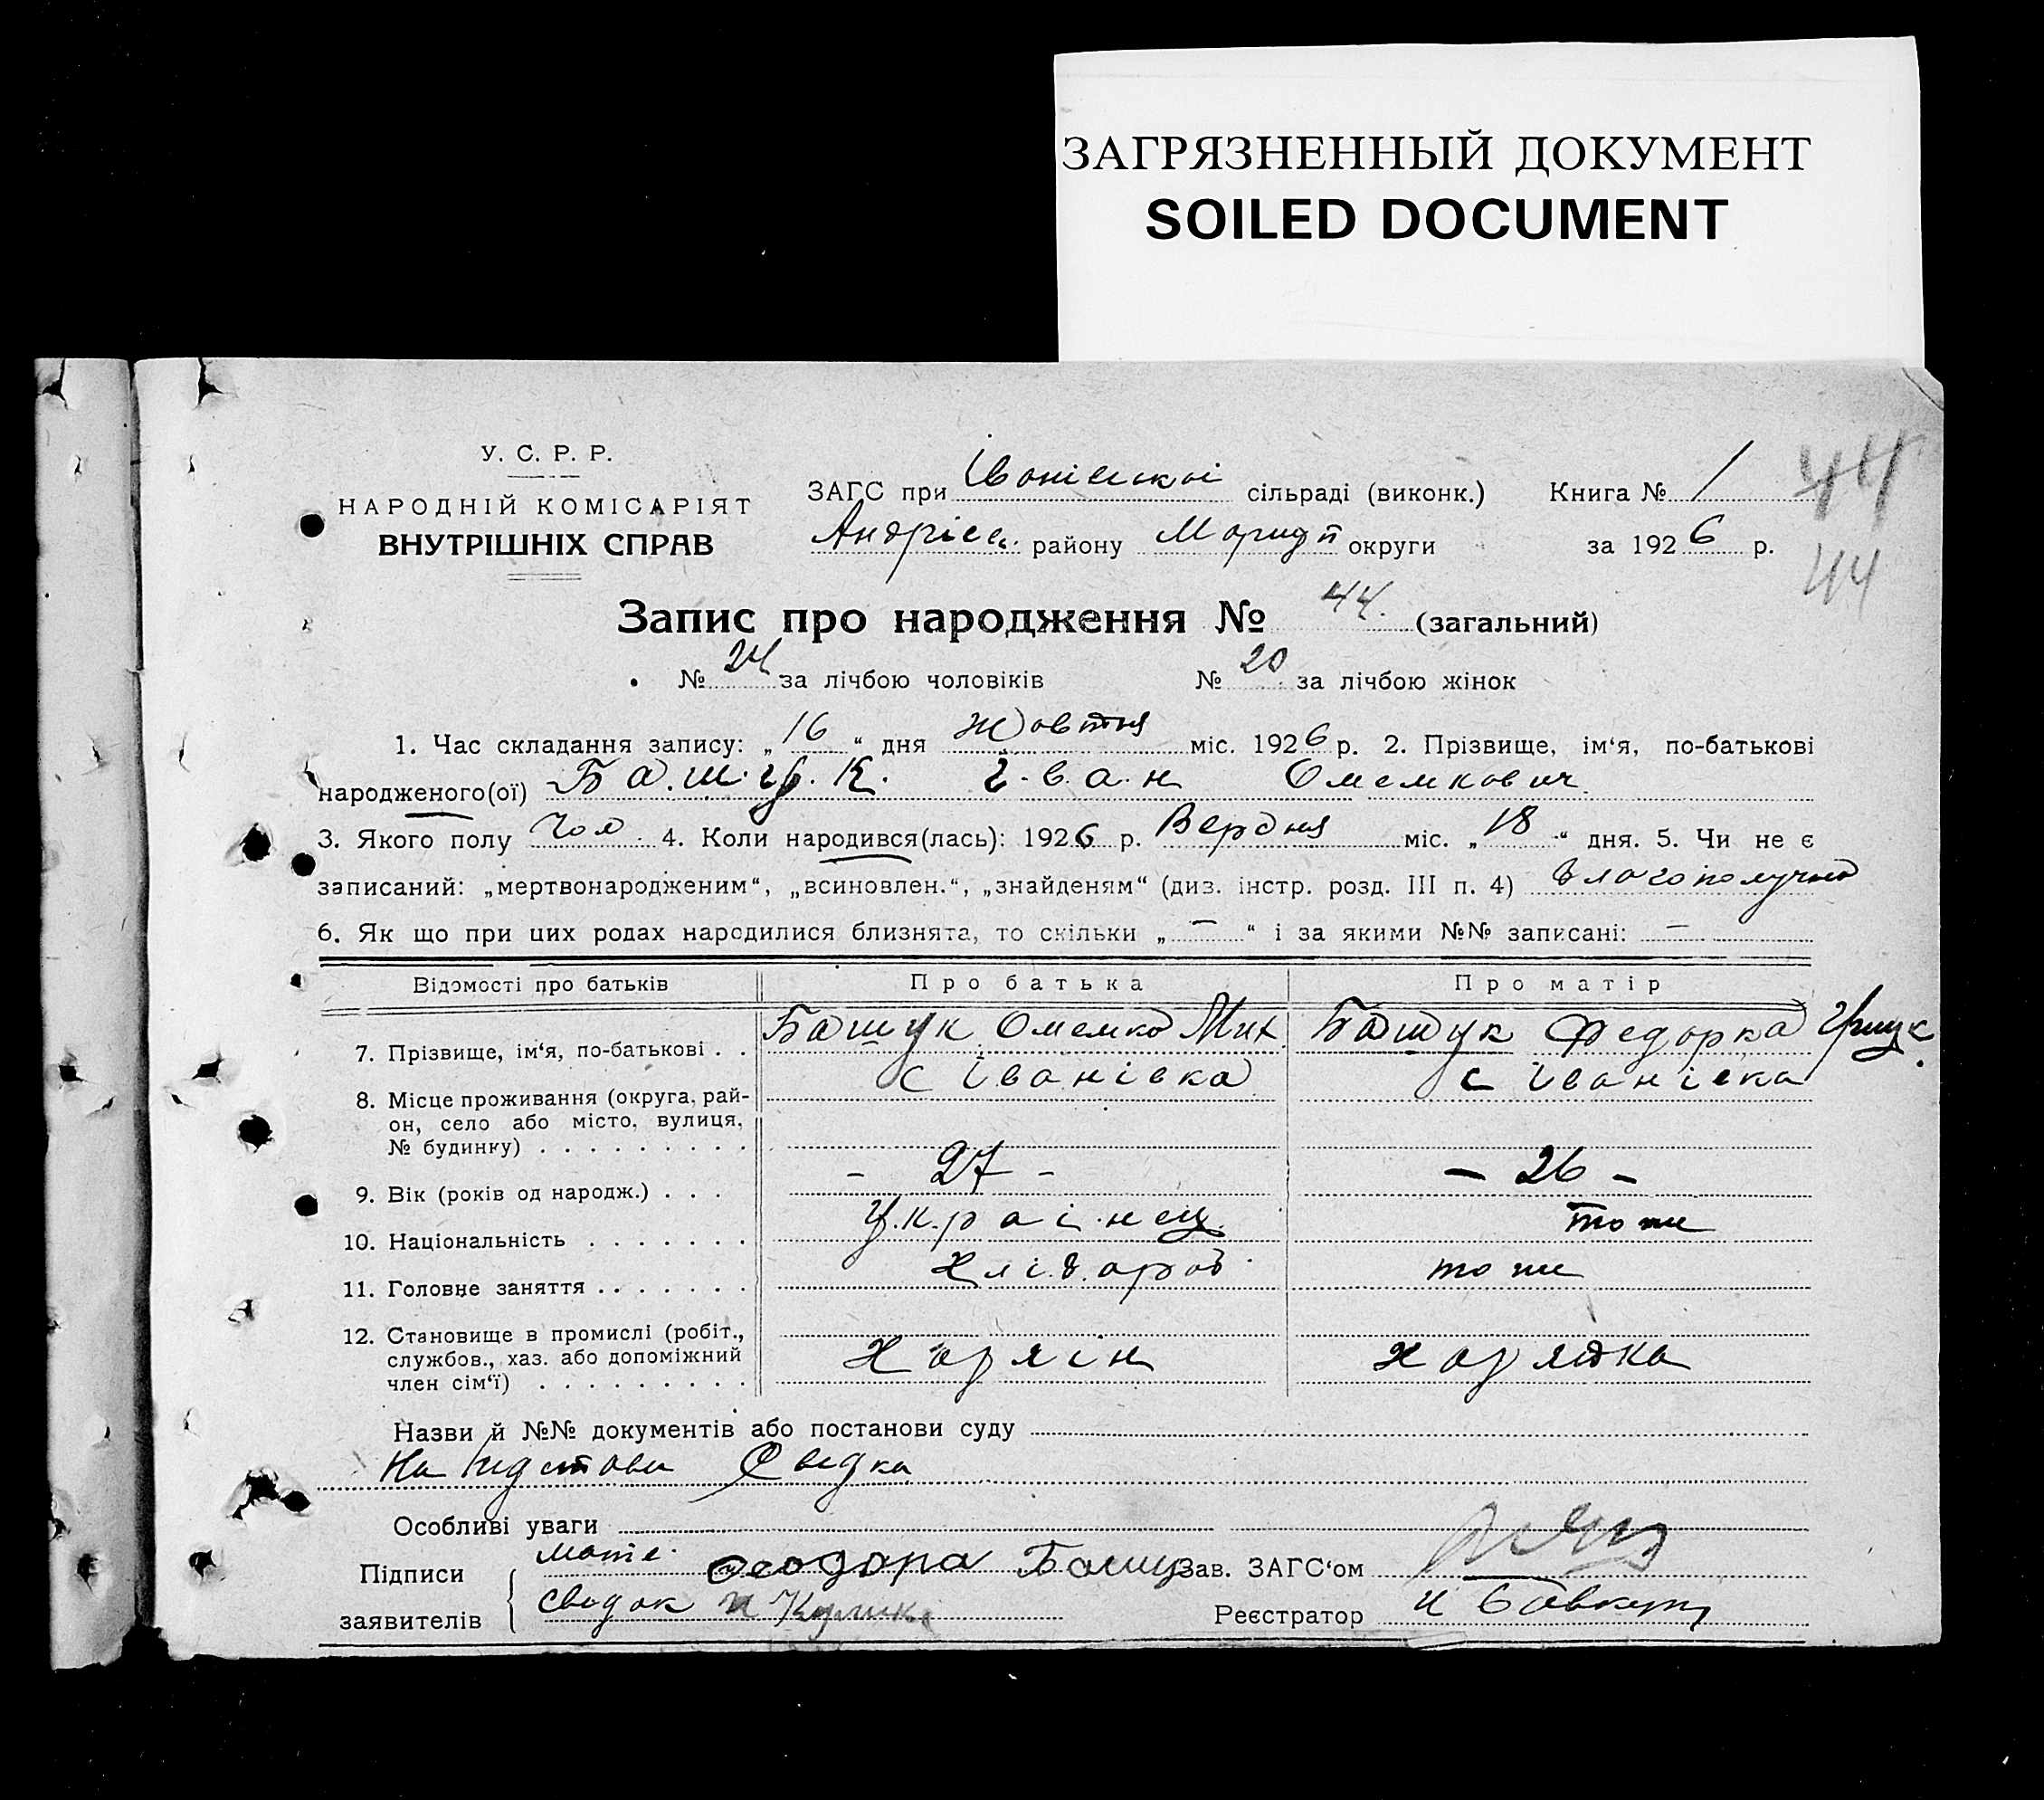 ЗАГРЯЗНЕННЫЙ ДОКУМЕНТ
SOILED DOCUMENT
У. С. Р. Р.
НАРОДНІЙ КОМІСАРІЯТ
ВНУТРІШНІХ СПРАВ
ЗАГС при Іванівській сільраді (виконк.) Книга № 1 44
Андріев. району Маріуп округи за 1926 р.
44
Запис про народження № 44. (загальний)
№ 24 за лічбою чоловіків № 20 за лічбою жінок
1. Час складання запису: „16“ дня Жовтня міс. 1926 р. 2. Прізвище, ім‘я, по-батькові
народженого(ої) Башук Іван Омемкович
3. Якого полу Чол 4. Коли народився(лась): 1926 р. Вердня міс. „18“ дня. 5. Чи не є
записаний: „мертвонародженим“, „всиновлен.“, „знайденям“ (див. інстр. розд. III п. 4) Благополучно
6. Як що при цих родах народилися близнята, то скільки „ — “ і за якими №№ записані: —
Відомості про батьків Про батька Про матір
7. Прізвище, ім‘я, по-батькові . . Башук Омемко Мих Башук Федорка Грицк.
8. Місце проживання (округа, рай- с Іванівка с Іванівка
он, село або місто, вулиця,
№ будинку) . . . . . . . . .
9. Вік (років од народж.) . . . - 27 - - 26 -
10. Національність . . . . . . . Украінец тоже
11. Головне заняття . . . . . . . Хлібороб тоже
12. Становище в промислі (робіт.,
службов., хаз. або допоміжний Хазяїн хазяйка
член сім‘ї) . . . . . . . . .
Назви й №№ документів або постанови суду
На підстави Сведка
Особливі уваги
Підписи мате. Феодора Башу Зав. ЗАГС‘ом
заявителів сведок Реєстратор